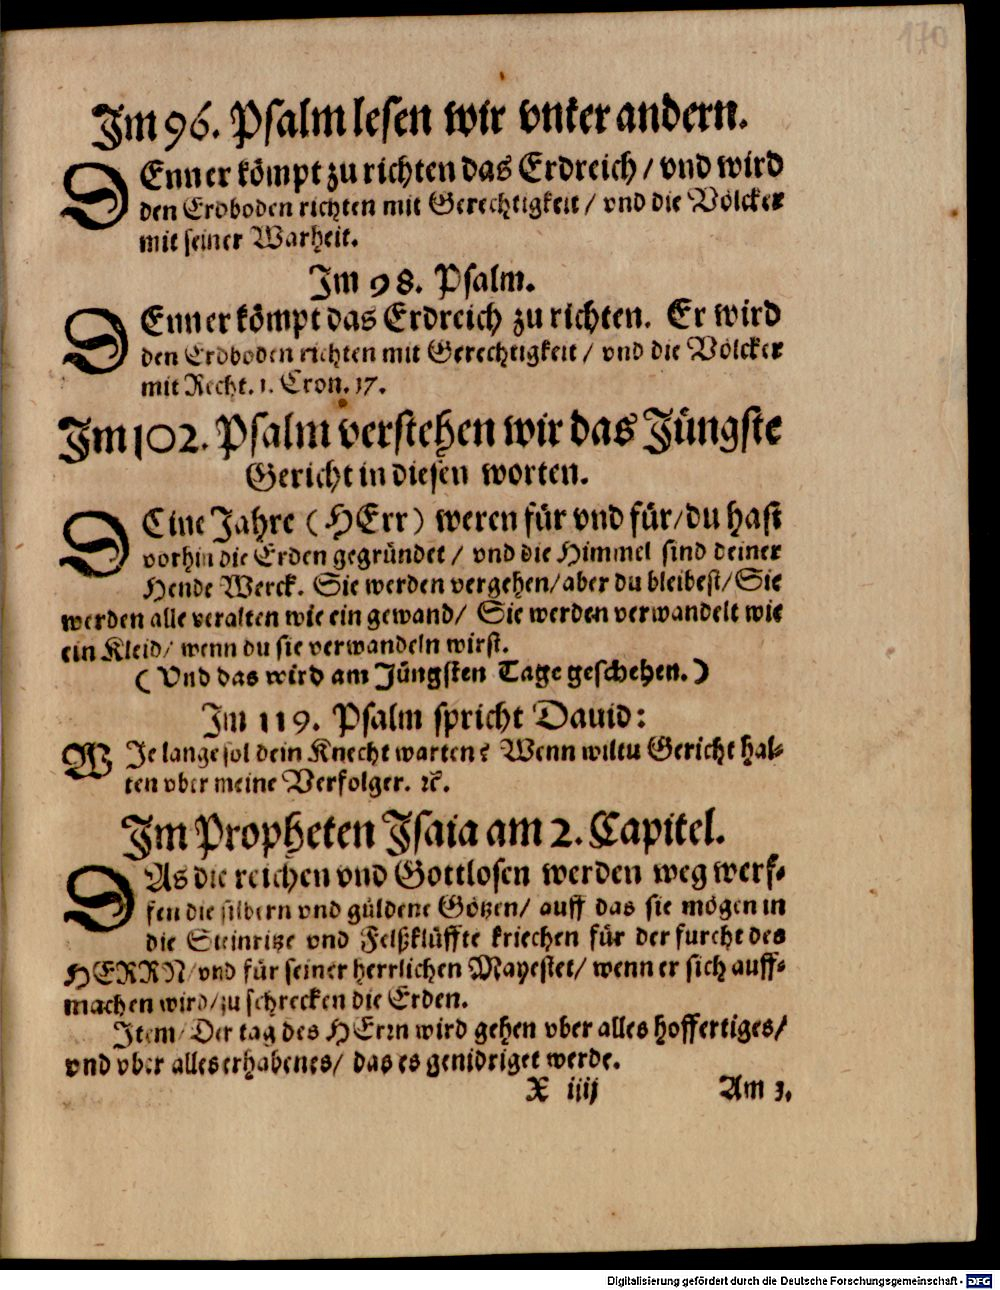 170
Im 96. Psalm lesen wir vnter andern.
DEnn er kömpt zu richten das Erdreich / vnd wird
den Erdboden richten mit Gerechtigkeit / vnd die Völcker
mit seiner Warheit.
Im 98. Psalm.
DEnn er kömpt das Erdreich zu richten. Er wird
den Erdboden richten mit Gerechtigkeit / vnd die Völcker
mit Recht. 1. Cron. 17.
Im 102. Psalm verstehen wir das Jüngste
Gericht in diesen worten.
DEine Jahre (HErr) weren für vnd für / du hast
vorhin die Erden gegründet / vnd die Himmel sind deiner
Hende Werck. Sie werden vergehen / aber du bleibest / Sie
werden alle veralten wie ein gewand / Sie werden verwandelt wie
ein Kleid / wenn du sie verwandeln wirst.
(Vnd das wird am Jüngsten Tage geschehen.)
Im 119. Psalm spricht Dauid:
WIe lange sol dein Knecht warten? Wenn wiltu Gericht hal-
ten vber meine Verfolger. ꝛc.
Im Propheten Isaia am 2. Capitel.
DAs die reichen vnd Gottlosen werden weg werf-
fen die silbern vnd güldene Götzen / auff das sie mögen in
die Steinritze vnd Felßklüffte kriechen für der furcht des
HERRN / vnd für seiner herrlichen Mayestet / wenn er sich auff-
machen wird / zu schrecken die Erden.
Item / Der tag des HErrn wird gehen vber alles hoffertiges /
vnd vber alles erhabenes / das es genidriget werde.
X iiij Am 3.
Digitalisierung gefördert durch die Deutsche Forschungsgemeinschaft - DFG